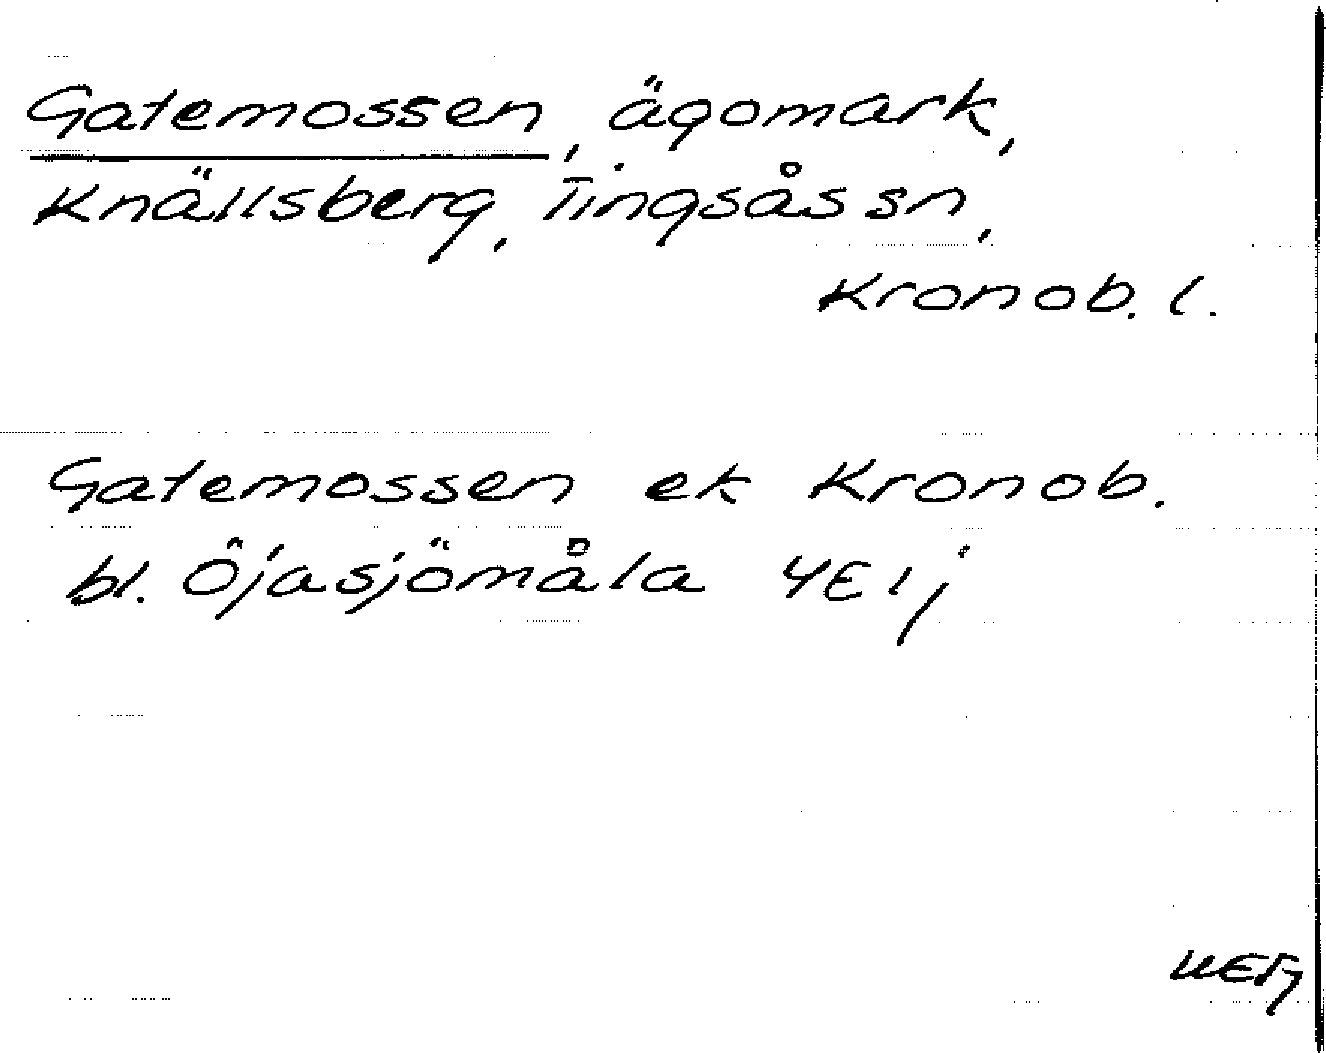 Gatemossen, ägomark,
Knällsberg, Tingsås sn,
Kronob. l.
Gatemossen ek Kronob.
bl. Öjasjömåla 4E 1j